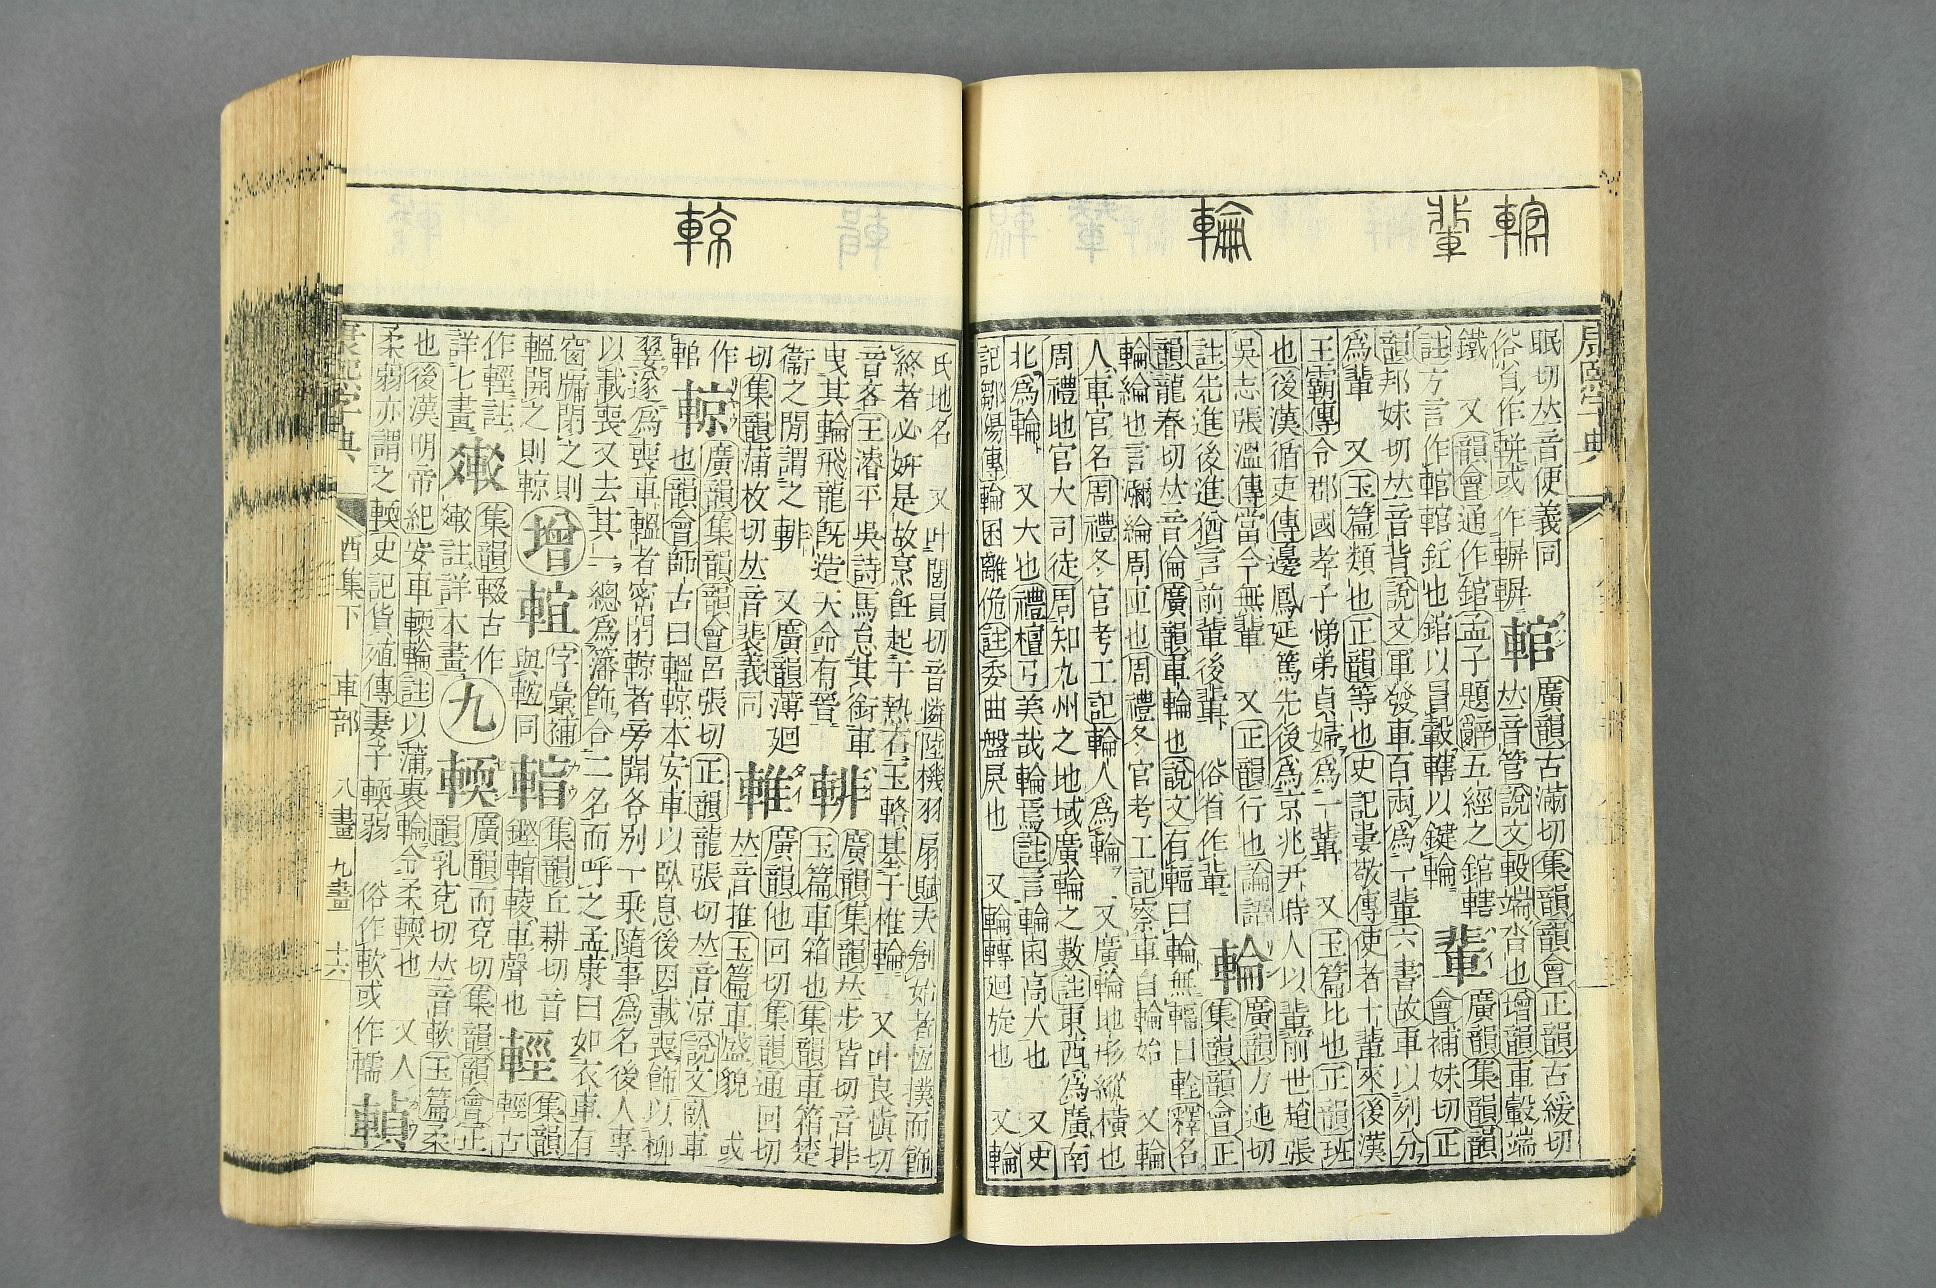 輨 輩 輪
康熙字典
眠切𠀤音便義同 輨 廣韻古滿切集韻韻會正韻古緩切
俗省作軿或作輧輧 𠀤音管說文轂端沓也增韻車轂端
鐵 又韻會通作錧孟子題辭五經之錧轄 輩 廣韻集韻韻
註方言作輨輨釭也錧以冒轂轄以鍵輪 會補妹切正
韻邦妹切𠀤音背說文軍發車百兩爲一輩六書故車以列分
爲輩 又玉篇類也正韻等也史記婁敬傳使者十輩來後漢
王霸傳令郡國孝子悌弟貞婦爲一輩 又玉篇比也正韻班
也後漢循吏傳邊鳳延篤先後爲京兆尹時人以輩前世趙張
吳志張溫傳當今無輩 又正韻行也論語 輪 廣韻力迍切
註先進後進猶言前輩後輩 俗省作軰 集韻韻會正
韻龍春切𠀤音倫廣韻車輪也說文有輻曰輪無輻曰輇釋名
輪綸也言彌綸周匝也周禮冬官考工記察車自輪始 又輪
人車官名周禮冬官考工記輪人爲輪 又廣輪地形縱橫也
周禮地官大司徒周知九州之地域廣輪之數註東西爲廣南
北爲輪 又大也禮檀弓美哉輪焉註言輪囷高大也 又史
記鄒陽傳輪囷離佹註委曲盤戾也 又輪轉迴旋也 又輪
輬
氏地名 又叶閭員切音憐陸機羽扇賦天創始者恆撲而飾
終者必妍是故烹飪起于熱石玉輅基于椎輪 又叶良愼切
音吝王濬平吳詩馬怠其銜車 輫 廣韻集韻𠀤步皆切音排
曳其輪飛龍旣造大命有晉 玉篇車箱也集韻車箱楚
衞之閒謂之輫 又廣韻薄迴 䡔 廣韻他回切集韻通回切
切集韻蒲枚切𠀤音裴義同 𠀤音推玉篇車盛貌 或
作 輬 廣韻集韻韻會呂張切正韻龍張切𠀤音凉說文臥車
也韻會師古曰轀輬本安車以臥息後因載喪飾以柳
翣遂爲喪車轀者密閉輬者旁開各別一乘隨事爲名後人專
以載喪又去其一總爲藩飾合二名而呼之孟康曰如衣車有
窗牖閉之則 增 字彙補 集韻丘耕切音 集韻
轀開之則輬 與 同 鏗 車聲也 輕 輕古
作輕註 集韻輟古作 九 輭 廣韻而兗切集韻韻會正
詳七畫 註詳本畫 韻乳兗切𠀤音軟玉篇柔
也後漢明帝紀安車輭輪註以蒲裹輪令柔輭也 又人
柔弱亦謂之輭史記貨殖傳妻子輭弱 俗作軟或作檽
康熙字典 酉集下 車部 八畫 九畫